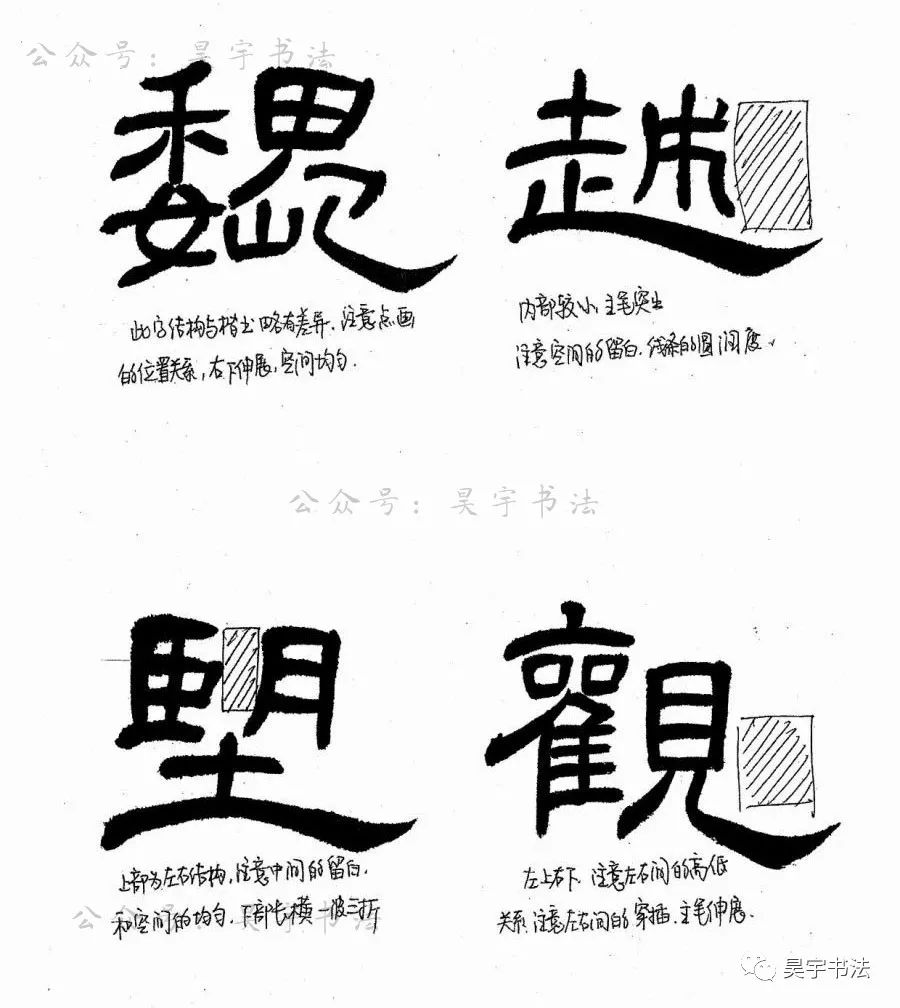 公众号：昊宇书法
魏
越
此字结构与楷书略有差异.注意点画
的位置关系,右下伸展,空间均匀.
内部较小,主笔突出
注意空间的留白.线条的圆润度.
公众号：昊宇书法
望
觀
上部为左右结构,注意中间的留白.
和空间的均匀.下部长横一波三折
左上右下.注意左右间的高低
关系.注意左右间的穿插.主笔伸展.
公众号：昊宇书法
昊宇书法